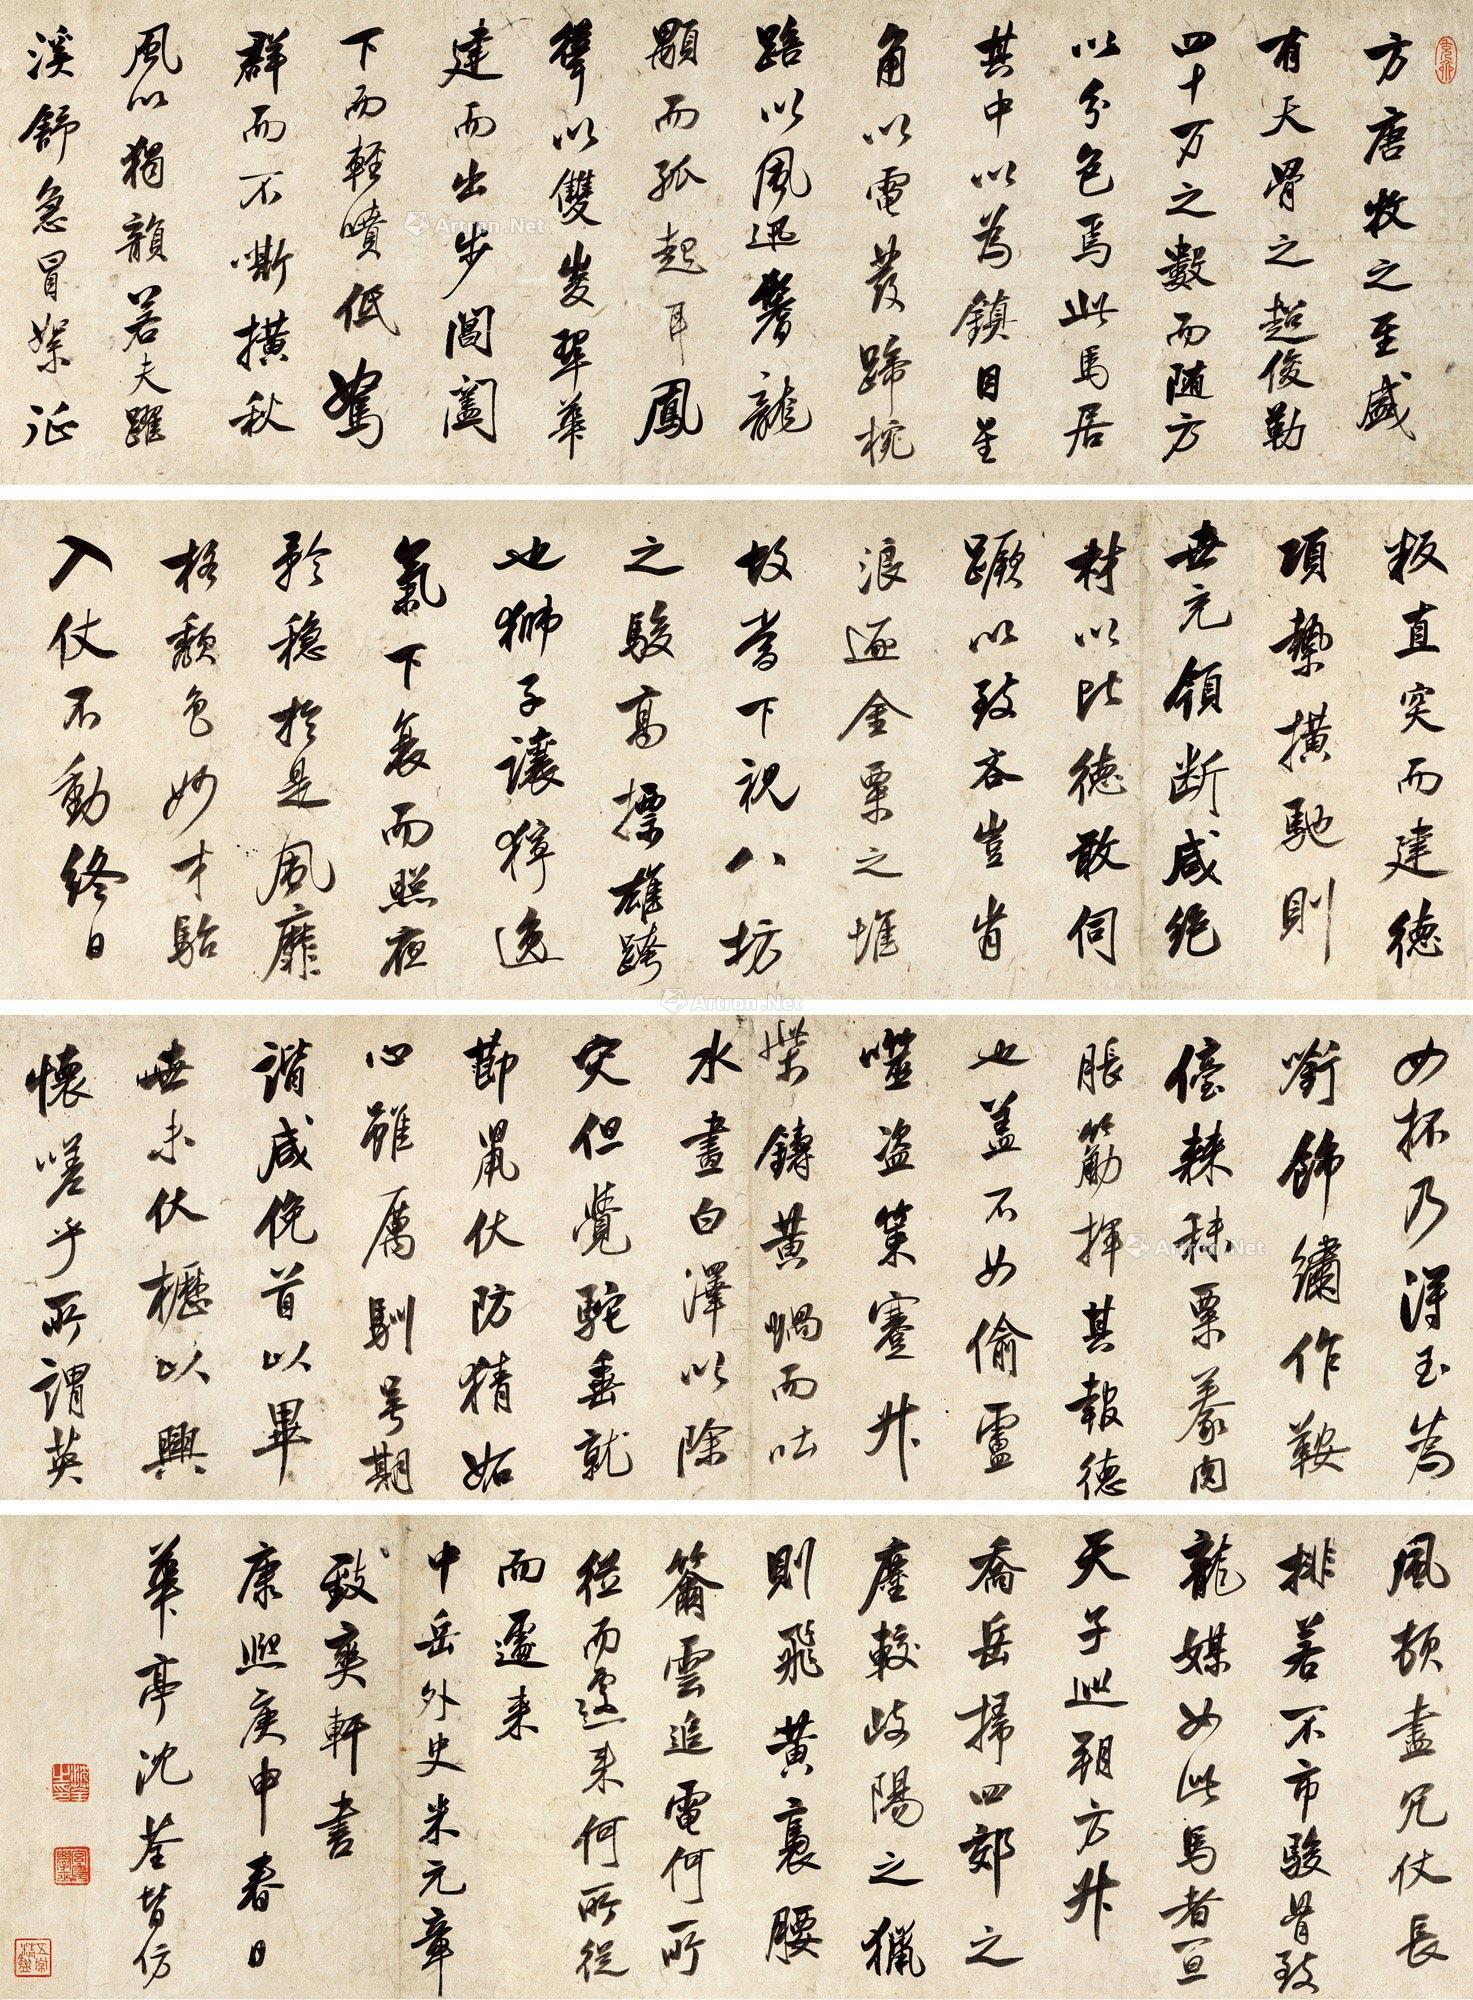 方唐牧之至盛
有天骨之超俊勒
四十万之數而随方
以分色焉此馬居
其中以為鎮目星
角以電發蹄椀
踣以風迅鬐龍
顒而孤起耳鳳
聳以雙峻翠華
建而出步閶闔
下而輕噴低駑
群而不嘶橫秋
風以獨韻若夫躍
溪舒急冒絮征
叛直突而建德
項縶橫馳則
世充領断咸絕
材以比德敢伺
蹶以致吝豈肯
浪逐金粟之堆
故當下視八坊
之駿高摽雄跨
也獅子讓獰逸
氣下裹而照夜
矜穩於是風靡
格頹色妙才駘
入仗不動終日
如坏乃得玉為
銜飾繡作鞍
儓棘秣粟豢肉
脹筋揮其報德
也盖不如偷盧
噬盗策蹇升
柴鑄黃蝸而吐
水畫白澤以除
灾但覺駝垂就
節鼠伏防猜妬
心雖厲馴号期
諧咸俛首以畢
世未伏櫪以興
懷嗟乎所謂英
風頓盡冗仗長
排若不市駿骨致
龍媒如此馬者一旦
天子巡朔方升
喬岳掃四郊之
塵較岐陽之獵
則飛黃裹腰
籋雲追電何所
從而遽来何所從
而遽来
中岳外史米元章
致爽軒書
康熙庚申春日
華亭沈荃暫仿
Artron.Net